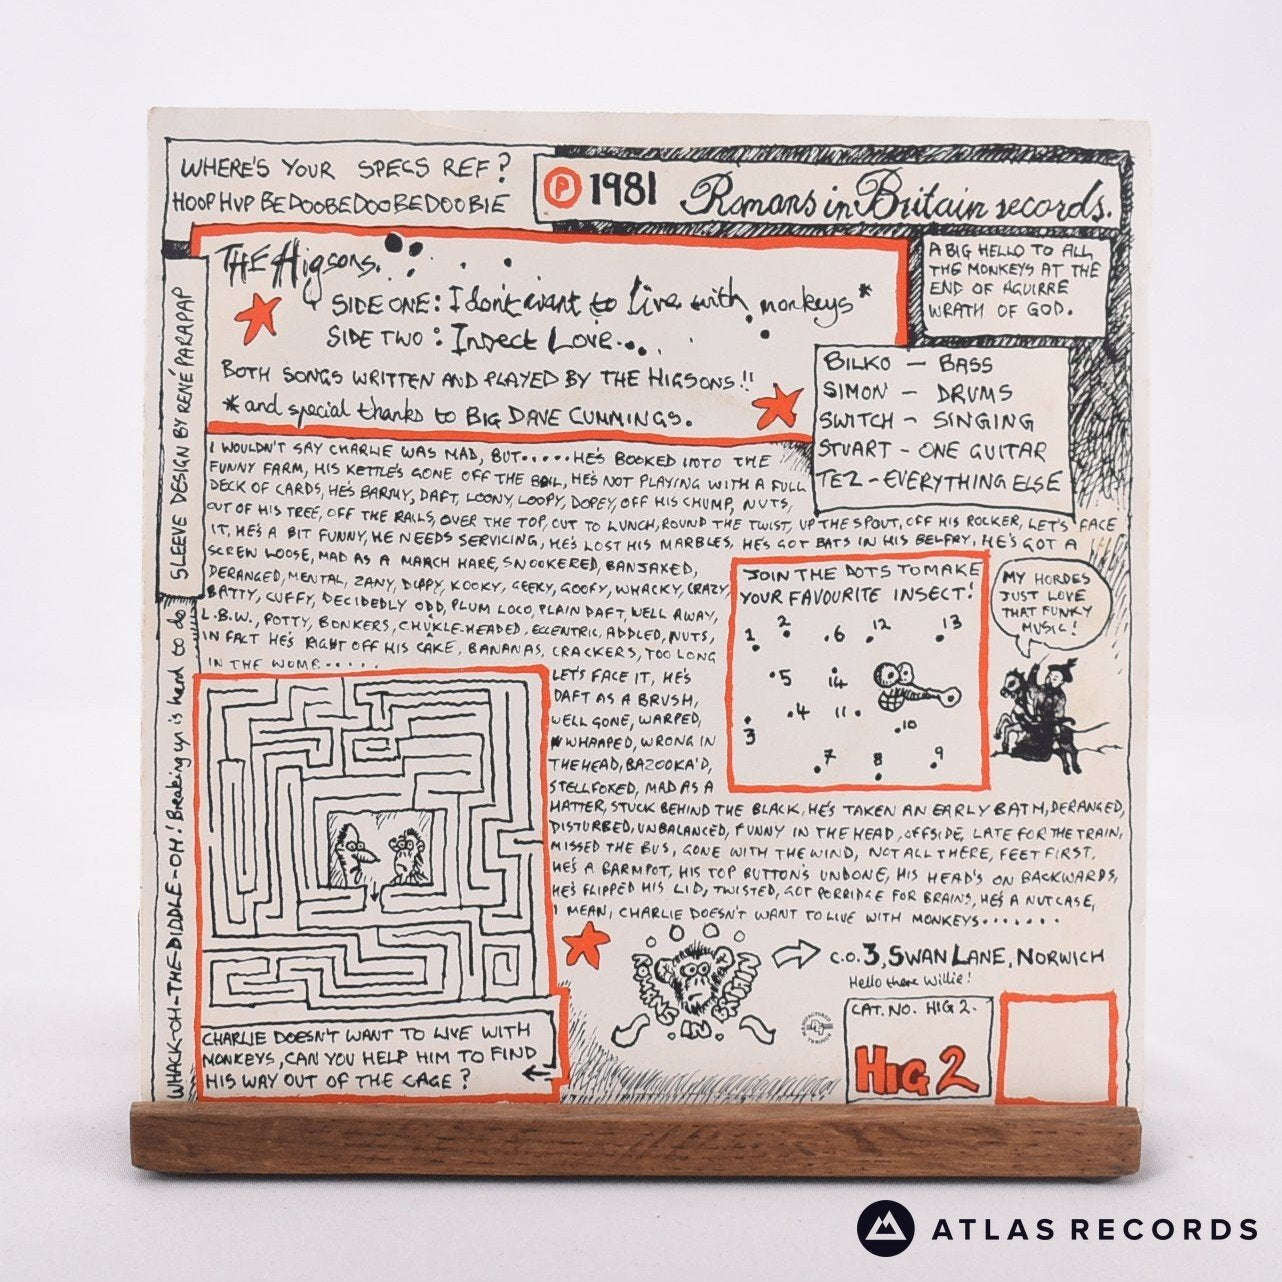 WHERE'S YOUR SPECS REF?
HOOP HUP BEDOOBEDOOBEDOOBIE
Ⓟ 1981 Romans in Britain records.
A BIG HELLO TO ALL
THE MONKEYS AT THE
END OF AGUIRRE
WRATH OF GOD.
THE Higsons.
SIDE ONE: I don't want to live with monkeys*
SIDE TWO: Insect Love...
BOTH SONGS WRITTEN AND PLAYED BY THE HIGSONS!!
*and special thanks to BIG DAVE CUMMINGS.
BILKO — BASS
SIMON — DRUMS
SWITCH - SINGING
STUART - ONE GUITAR
TEZ - EVERYTHING ELSE
SLEEVE DESIGN BY RENÉ PARAPAP
WHACK-OH-THE-DIDDLE-OH! Breaking up is hard to do
I WOULDN'T SAY CHARLIE WAS MAD, BUT.....HE'S BOOKED INTO THE
FUNNY FARM, HIS KETTLE'S GONE OFF THE BOIL, HE'S NOT PLAYING WITH A FULL
DECK OF CARDS, HE'S BARMY, DAFT, LOONY, LOOPY, DOPEY, OFF HIS CHUMP, NUTS,
OUT OF HIS TREE, OFF THE RAILS, OVER THE TOP, OUT TO LUNCH, ROUND THE TWIST, UP THE SPOUT, OFF HIS ROCKER, LET'S FACE
IT, HE'S A BIT FUNNY, HE NEEDS SERVICING, HE'S LOST HIS MARBLES, HE'S GOT BATS IN HIS BELFRY, HE'S GOT A
SCREW LOOSE, MAD AS A MARCH HARE, SNOOKERED, BANJAXED,
DERANGED, MENTAL, ZANY, DIPPY, KOOKY, GEEKY, GOOFY, WHACKY, CRAZY,
BATTY, CUFFY, DECIDEDLY ODD, PLUM LOCO, PLAIN DAFT, WELL AWAY,
L.B.W., POTTY, BONKERS, CHUKLE-HEADED, ECCENTRIC, ADDLED, NUTS,
IN FACT HE'S RIGHT OFF HIS CAKE, BANANAS, CRACKERS, TOO LONG
IN THE WOMB.....
LET'S FACE IT, HE'S
DAFT AS A BRUSH,
WELL GONE, WARPED,
WHAAPED, WRONG IN
THE HEAD, BAZOOKA'D,
STELLFOXED, MAD AS A
HATTER, STUCK BEHIND THE BLACK, HE'S TAKEN AN EARLY BATH, DERANGED,
DISTURBED, UNBALANCED, FUNNY IN THE HEAD, OFFSIDE, LATE FOR THE TRAIN,
MISSED THE BUS, GONE WITH THE WIND, NOT ALL THERE, FEET FIRST,
HE'S A BARMPOT, HIS TOP BUTTON'S UNDONE, HIS HEAD'S ON BACKWARDS,
HE'S FLIPPED HIS LID, TWISTED, GOT PORRIDGE FOR BRAINS, HE'S A NUTCASE,
I MEAN, CHARLIE DOESN'T WANT TO LIVE WITH MONKEYS.......
JOIN THE DOTS TO MAKE
YOUR FAVOURITE INSECT!
1 2 6 12 13
5 14
3 4 11 10
7 8 9
MY HORDES
JUST LOVE
THAT FUNKY
MUSIC!
ROMANS IN BRITAIN
C.O. 3, SWAN LANE, NORWICH
Hello there Willie!
CAT. NO. HIG 2.
HIG 2
CHARLIE DOESN'T WANT TO LIVE WITH
MONKEYS, CAN YOU HELP HIM TO FIND
HIS WAY OUT OF THE CAGE?
ATLAS RECORDS